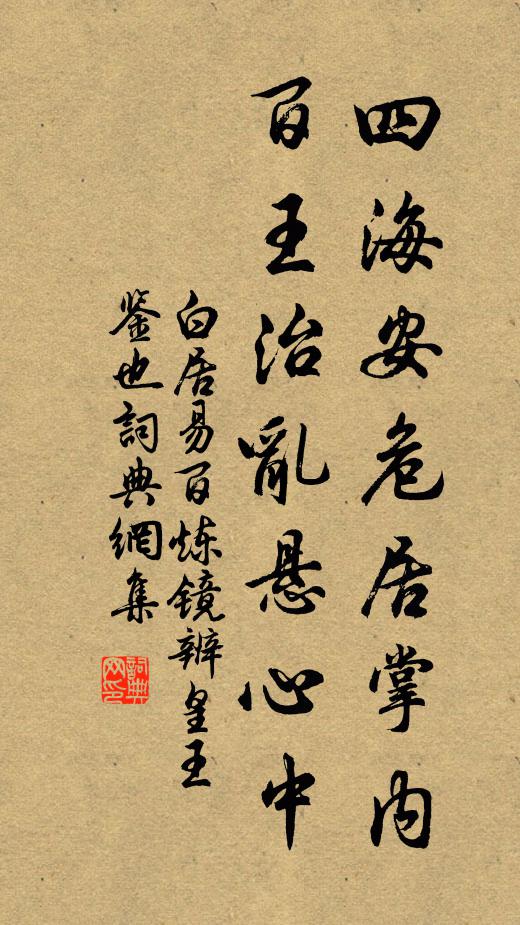 四海安危居掌内
百王治亂悬心中
白居易百炼镜辨皇王
鉴也詞典網集
詞典网印